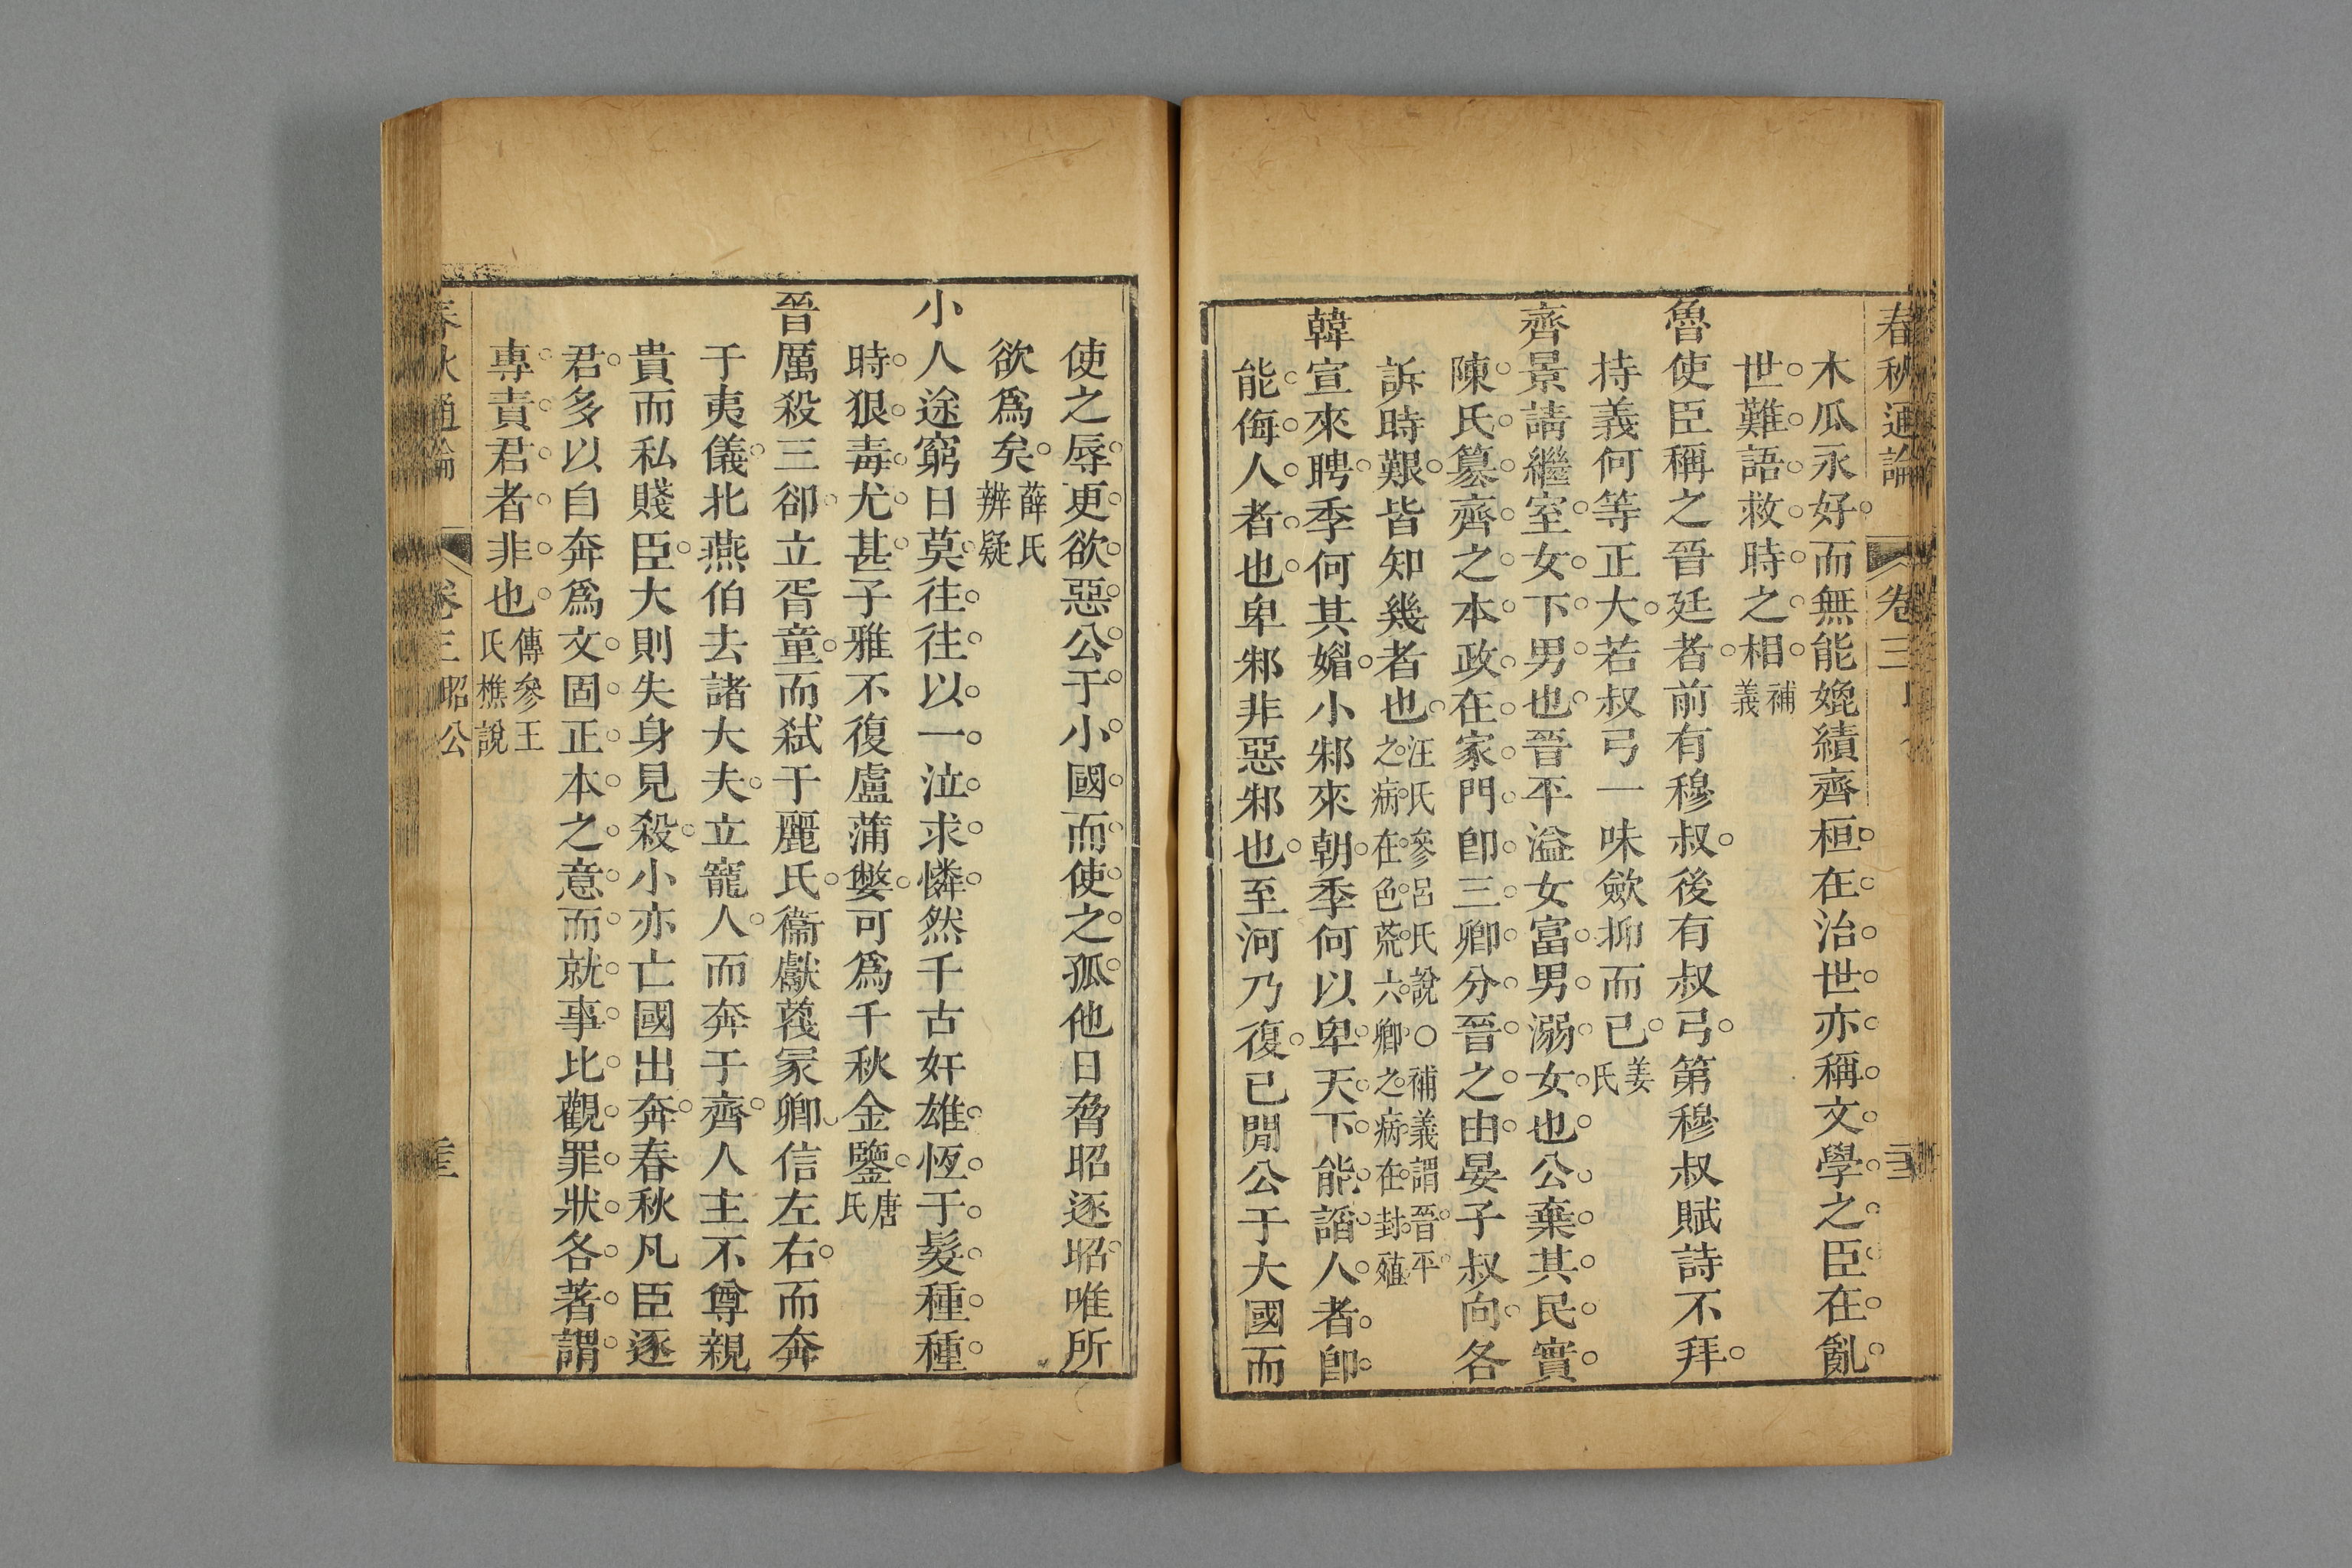 春秋通論　卷三
木瓜永好而無能娩績齊桓在治世亦稱文學之臣在亂
世難語救時之相補義
魯使臣稱之晉廷者前有穆叔後有叔弓第穆叔賦詩不拜
持義何等正大若叔弓一味歛抑而已姜氏
齊景請繼室女下男也晉平溢女富男溺女也公棄其民實
陳氏篡齊之本政在家門卽三卿分晉之由晏子叔向各
訴時艱皆知幾者也汪氏參呂氏說○補義謂晉平之病在色荒六卿之病在封殖
韓宣來聘季何其媚小邾來朝季何以卑天下能謟人者卽
能侮人者也卑邾非惡邾也至河乃復已閒公于大國而
使之辱更欲惡公于小國而使之孤他日脅昭逐昭唯所
欲爲矣薛氏辨疑
小人途窮日莫往往以一泣求憐然千古奸雄恆于髮種種
時狠毒尤甚子雅不復盧蒲嫳可爲千秋金鑒唐氏
晉厲殺三郤立胥童而弑于麗氏衞獻蔑冢卿信左右而奔
于夷儀北燕伯去諸大夫立寵人而奔于齊人主不尊親
貴而私賤臣大則失身見殺小亦亡國出奔春秋凡臣逐
君多以自奔爲文固正本之意而就事比觀罪狀各著謂
專責君者非也傳參王氏樵說
春秋通論　卷三　昭公